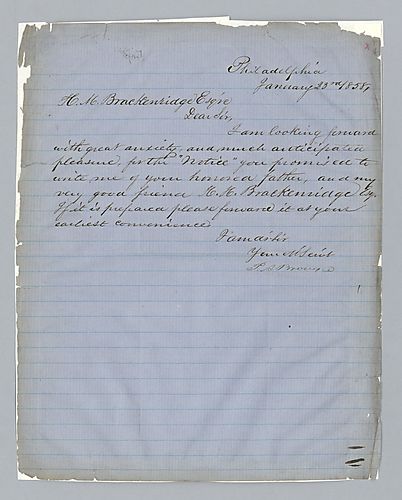 Philadelphia
January 23rd/858,
H. M. Brackenridge Esqre
Dear Sir,
I am looking forward
with great anxiety, and much anticipated
pleasure, for the "Notice" you promised to
write me of your honored father, and my
very good friend H. H. Brackenridge Esq.
If it is prepared please forward it at your
earliest convenience
I am dr Sir
Your Ob Servt
P. A. Browne